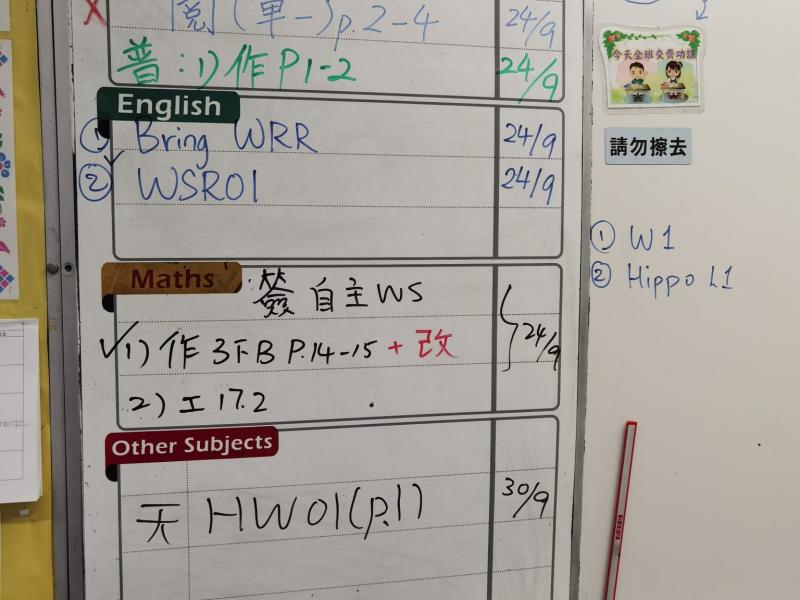 閱(單一)p.2-4 24/9
普:1)作P1-2 24/9
English
① Bring WRR 24/9
② WSR01 24/9
Maths
簽 自主WS
1)作 3下B P.14-15 + 改 24/9
2)工 17.2
Other Subjects
天 HW01(p.1) 30/9
今天全班交齊功課
請勿擦去
① W1
② Hippo L1